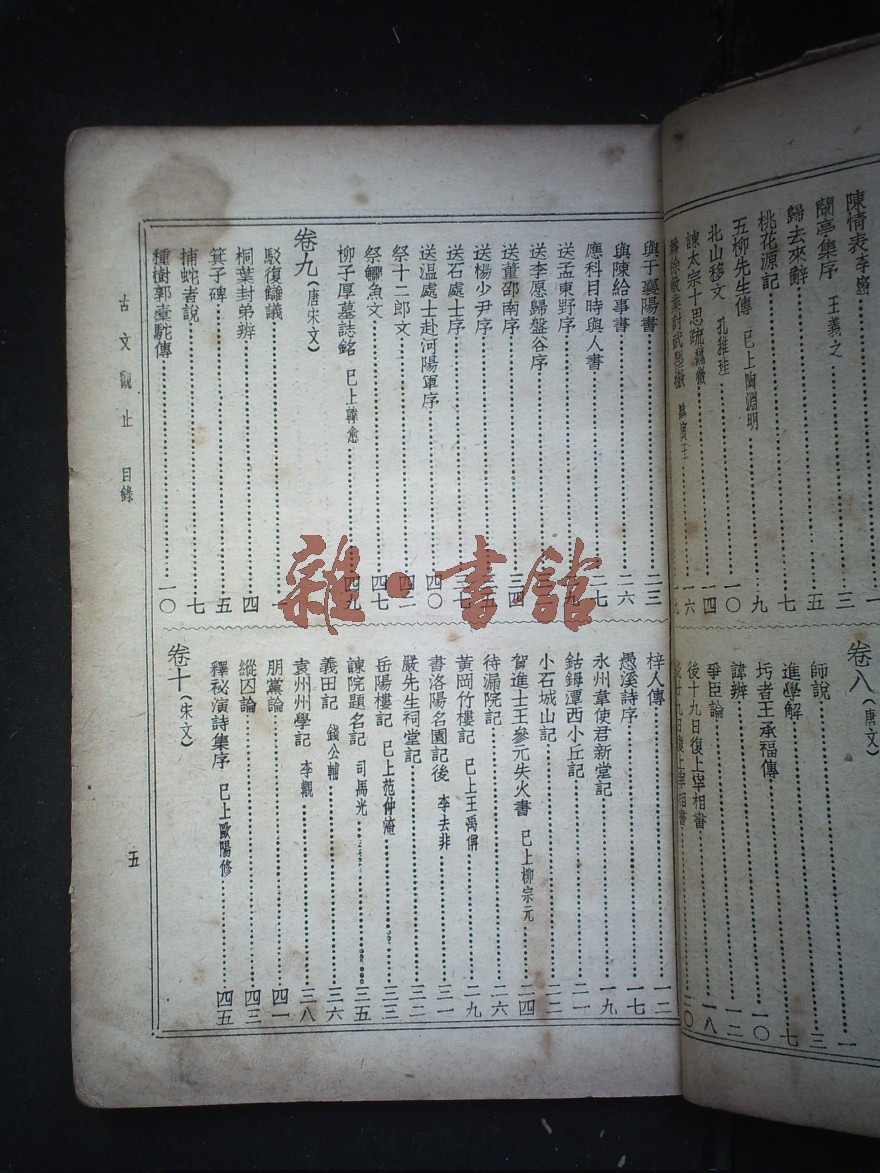 陳情表 李密 一
蘭亭集序 王羲之 三
歸去來辭 五
桃花源記 七
五柳先生傳 已上陶淵明 九
北山移文 孔稚珪 一〇
諫太宗十思疏 魏徵 一四
為徐敬業討武曌檄 駱賓王 一六
卷八(唐文)
師說 一
進學解 三
圬者王承福傳 七
諱辨 一〇
爭臣論 一二
後十九日復上宰相書 一八
後廿九日復上宰相書 二〇
與于襄陽書 二三
與陳給事書 二六
應科目時與人書 二七
送孟東野序
送李愿歸盤谷序
送董邵南序 三四
送楊少尹序
送石處士序
送温處士赴河陽軍序 四〇
祭十二郎文 四二
祭鱷魚文 四七
柳子厚墓誌銘 已上韓愈 四九
卷九(唐宋文)
駁復讎議 一
桐葉封弟辨 四
箕子碑 五
捕蛇者說 七
種樹郭橐駝傳 一〇
梓人傳 一二
愚溪詩序 一七
永州韋使君新堂記 一九
鈷鉧潭西小丘記 二一
小石城山記 二二
賀進士王參元失火書 已上柳宗元 二四
待漏院記 二六
黃岡竹樓記 已上王禹偁 二九
書洛陽名園記後 李去非 三一
嚴先生祠堂記 三二
岳陽樓記 已上范仲淹 三三
諫院題名記 司馬光 三五
義田記 錢公輔 三六
袁州州學記 李覯 三八
朋黨論 四一
縱囚論 四三
釋祕演詩集序 已上歐陽修 四五
卷十(宋文)
古文觀止 目錄
五
雜·書館